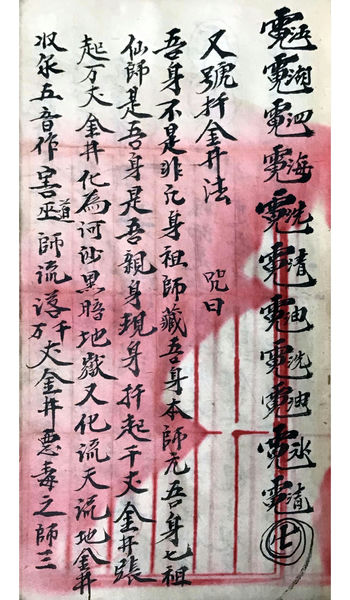 七
又號扦金井法 咒曰
吾身不是非凡身祖師藏吾身本師元吾身七祖
仙師是吾身是吾親身現身扦起千丈金井張
起万丈金井化為河沙黑暗地獄又化流天流地金井
收尔五音作害巫道師流浮千万丈金井惡毒之師三